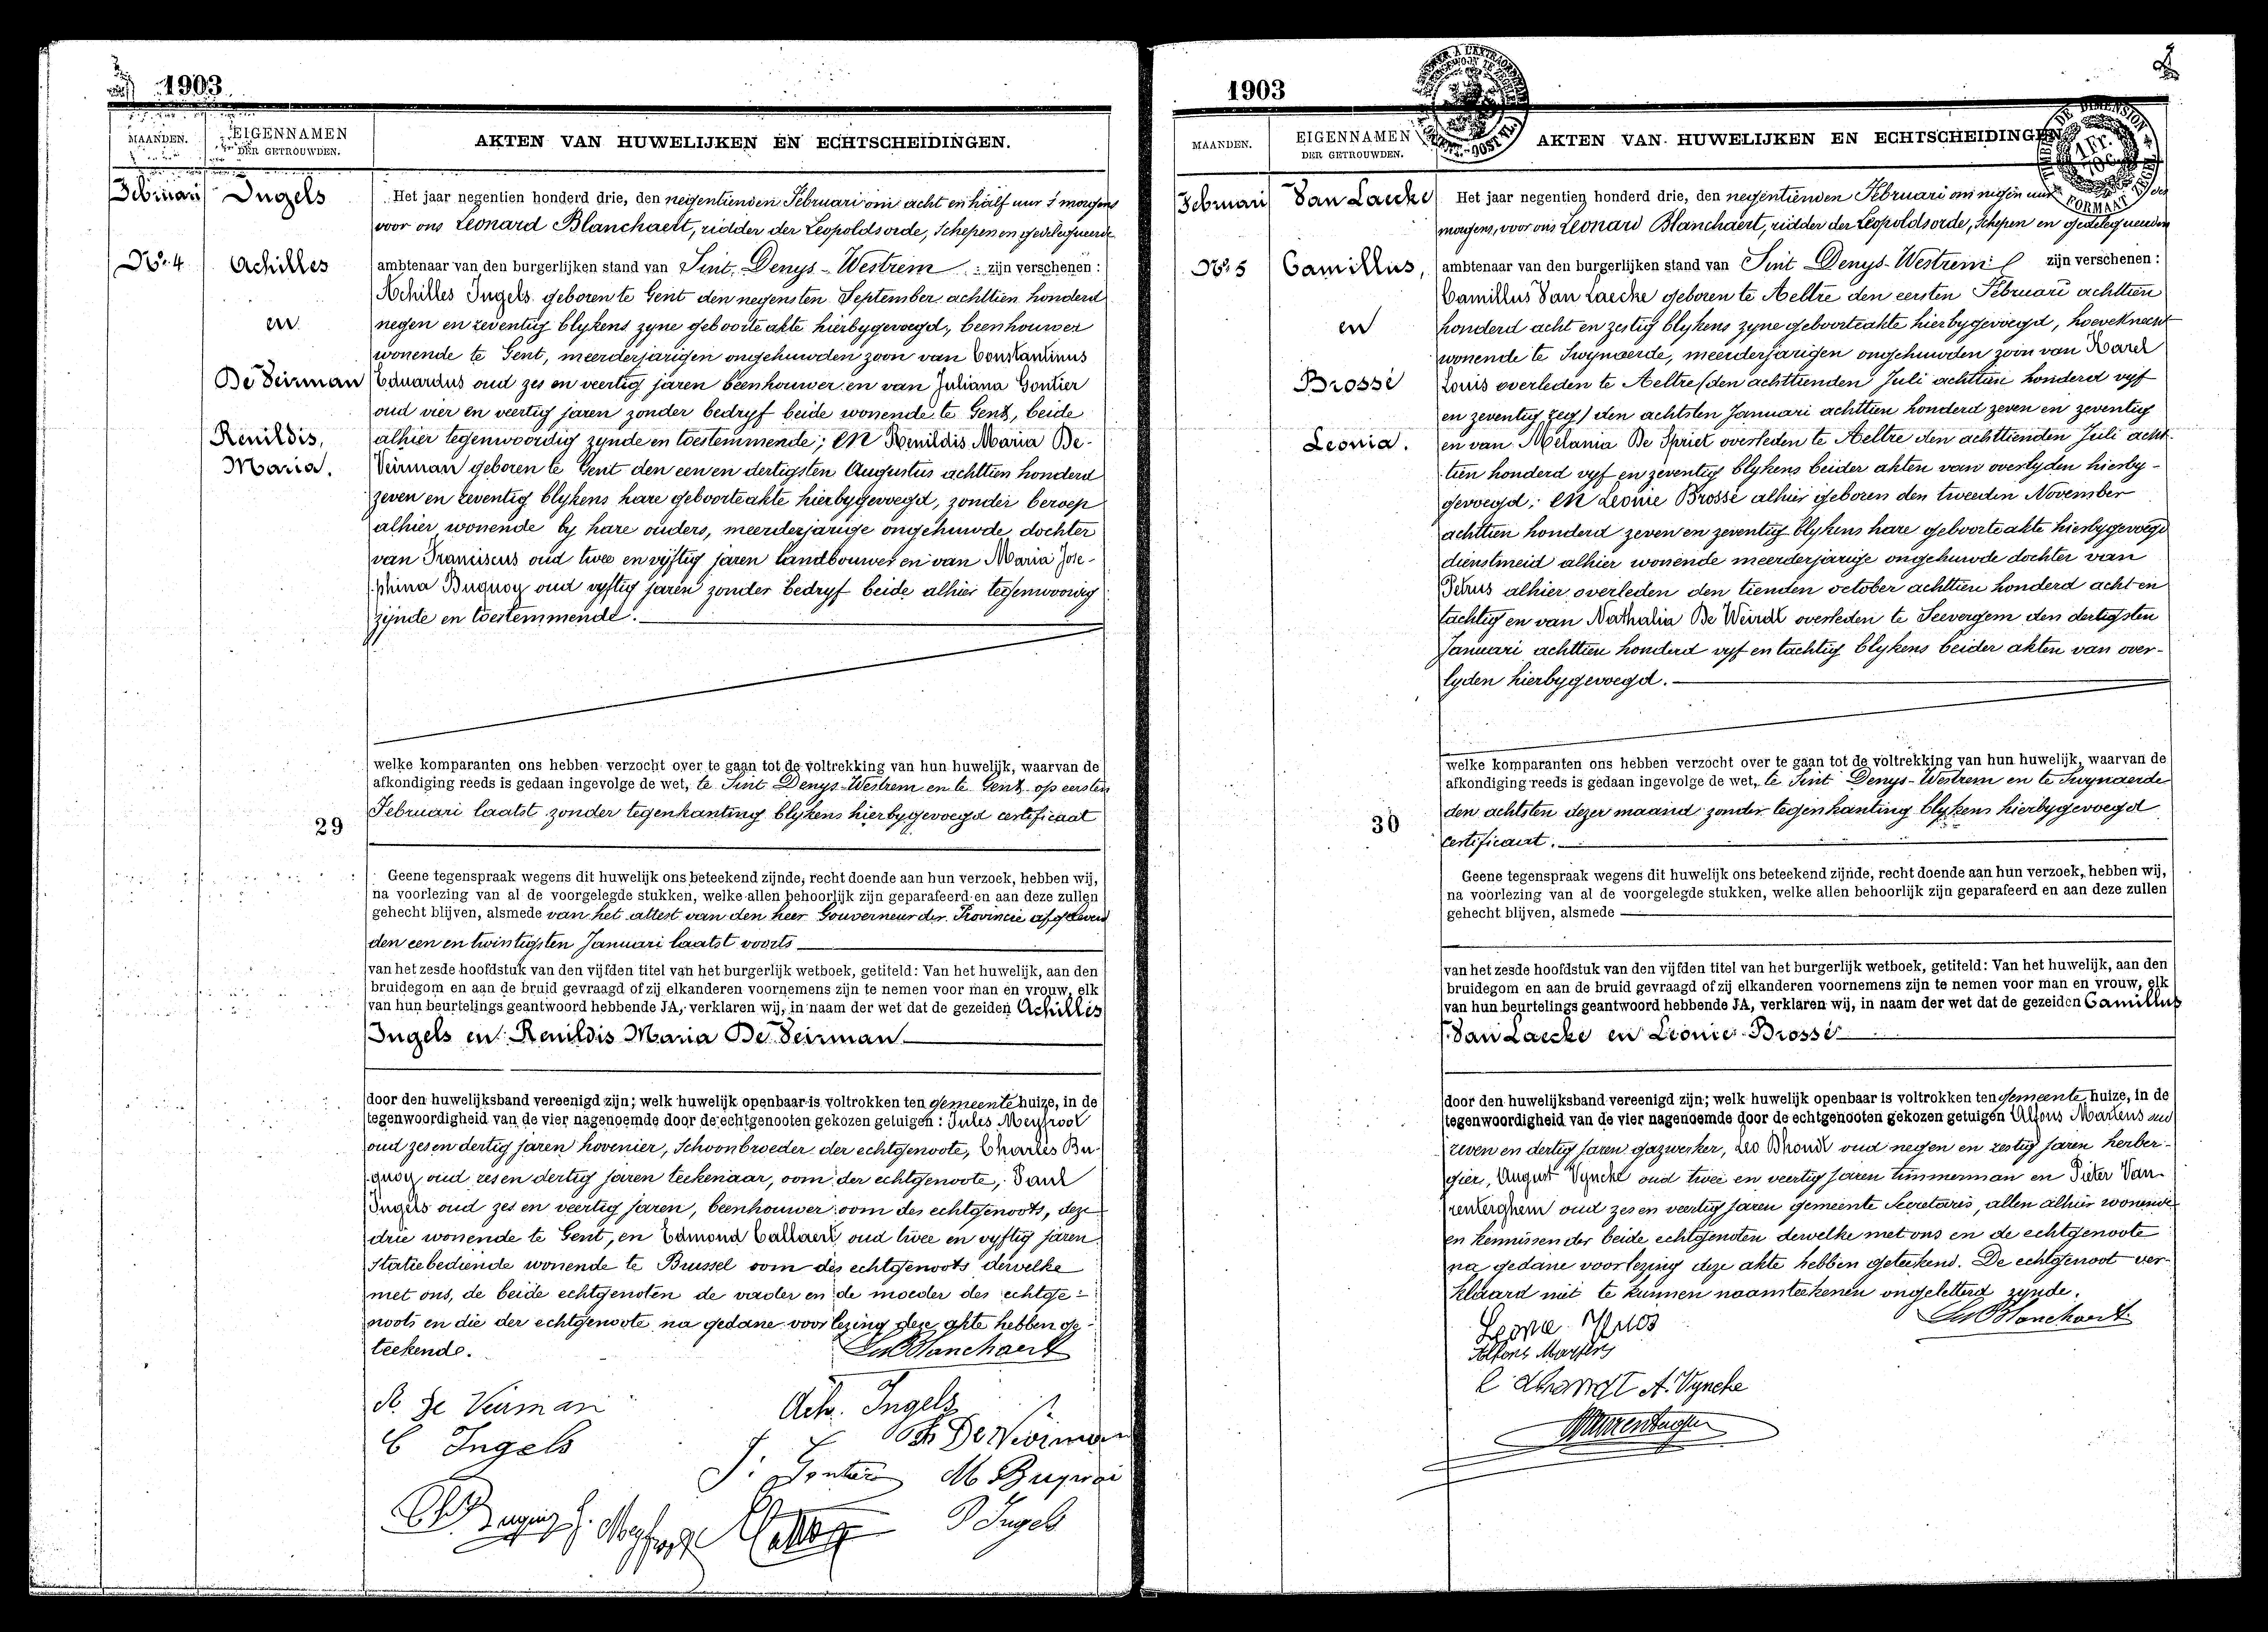 1903
MAANDEN.
EIGENNAMEN
DER GETROUWDEN.
AKTEN VAN HUWELIJKEN EN ECHTSCHEIDINGEN.
Februari
Ingels
Nr. 4
Achilles
en
De Veirman
Renildis,
Maria.
Het jaar negentien honderd drie, den negentienden Februari om acht en half uur 's morgens
voor ons Leonard Blanchaert, ridder der Leopoldsorde, Schepen en gedelegueerde
ambtenaar van den burgerlijken stand van Sint Denys-Westrem zijn verschenen:
Achilles Ingels geboren te Gent den negensten September achttien honderd
negen en zeventig blykens zyne geboorteakte hierbygevoegd, beenhouwer
wonende te Gent, meerderjarigen ongehuwden zoon van Constantinus
Eduardus oud zes en veertig jaren beenhouwer en van Juliana Gontier
oud vier en veertig jaren zonder bedryf beide wonende te Gent, beide
alhier tegenwoordig zynde en toestemmende; en Renildis Maria De-
Veirman geboren te Gent den een en dertigsten Augustus achttien honderd
zeven en zeventig blykens hare geboorteakte hierbygevoegd, zonder beroep
alhier wonende by hare ouders, meerderjarige ongehuwde dochter
van Franciscus oud twee en vyftig jaren landbouwer en van Maria Jose-
phina Buquoy oud vyftig jaren zonder bedryf beide alhier tegenwoordig
zijnde en toestemmende.
welke komparanten ons hebben verzocht over te gaan tot de voltrekking van hun huwelijk, waarvan de
afkondiging reeds is gedaan ingevolge de wet, te Sint Denys-Westrem en te Gent op eersten
Februari laatst zonder tegenkanting blykens hierbygevoegd certificaat
29
Geene tegenspraak wegens dit huwelijk ons beteekend zijnde, recht doende aan hun verzoek, hebben wij,
na voorlezing van al de voorgelegde stukken, welke allen behoorlijk zijn geparafeerd en aan deze zullen
gehecht blijven, alsmede van het attest van den heer Gouverneur der Provincie afgeleverd
den een en twintigsten Januari laatst voorts
van het zesde hoofdstuk van den vijfden titel van het burgerlijk wetboek, getiteld: Van het huwelijk, aan den
bruidegom en aan de bruid gevraagd of zij elkanderen voornemens zijn te nemen voor man en vrouw, elk
van hun beurtelings geantwoord hebbende JA, verklaren wij, in naam der wet dat de gezeiden Achilles
Ingels en Renildis Maria De Veirman
door den huwelijksband vereenigd zijn; welk huwelijk openbaar is voltrokken ten gemeente huize, in de
tegenwoordigheid van de vier nagenoemde door de echtgenooten gekozen getuigen: Jules Meyfroot
oud zes en dertig jaren hovenier, Schoonbroeder der echtgenoote, Charles Bu-
quoy oud zes en dertig jaren teekenaar, oom der echtgenoote, Paul
Ingels oud zes en veertig jaren, beenhouwer oom des echtgenoots, deze
drie wonende te Gent, en Edmond Callaert oud twee en vyftig jaren
Statiebediende wonende te Brussel oom des echtgenoots dewelke
met ons, de beide echtgenoten de vader en de moeder des echtge-
noots en die der echtgenoote na gedane voorlezing deze akte hebben ge-
teekende.
R. De Veirman
Ach. Ingels
C Ingels
M Buquoi
P Ingels
1903
MAANDEN.
EIGENNAMEN
DER GETROUWDEN.
AKTEN VAN HUWELIJKEN EN ECHTSCHEIDINGEN
Februari
Van Laecke
Nr. 5
Camillus,
en
Brossé
Leonia.
Het jaar negentien honderd drie, den negentienden Februari om negen uur des
morgens, voor ons Leonard Blanchaert, ridder der Leopoldsorde, Schepen en gedelegueerden
ambtenaar van den burgerlijken stand van Sint Denys-Westrem zijn verschenen:
Camillus Van Laecke geboren te Aeltre den eersten Februari achttien
honderd acht en zestig blykens zyne geboorteakte hierbygevoegd, hoeveknecht
wonende te Swynaerde, meerderjarigen ongehuwden zoon van Karel
Louis overleden te Aeltre (den achttienden Juli achttien honderd vyf
en zeventig zeg) den achtsten Januari achttien honderd zeven en zeventig
en van Melania De Spriet overleden te Aeltre den achttienden Juli acht-
tien honderd vyf en zeventig blykens beider akten van overlyden hierby-
gevoegd; en Leonie Brossé alhier geboren den tweeden November
achttien honderd zeven en zeventig blykens hare geboorteakte hierbygevoegd
dienstmeid alhier wonende meerderjarige ongehuwde dochter van
Petrus alhier overleden den tienden october achttien honderd acht en
tachtig en van Nathalia De Weirdt overleden te Seevergem den dertigsten
Januari achttien honderd vyf en tachtig blykens beider akten van over-
lyden hierbygevoegd.
welke komparanten ons hebben verzocht over te gaan tot de voltrekking van hun huwelijk, waarvan de
afkondiging reeds is gedaan ingevolge de wet, te Sint Denys-Westrem en te Swynaerde
den achtsten dezer maand zonder tegenkanting blykens hierbygevoegd
certificaat.
30
Geene tegenspraak wegens dit huwelijk ons beteekend zijnde, recht doende aan hun verzoek, hebben wij,
na voorlezing van al de voorgelegde stukken, welke allen behoorlijk zijn geparafeerd en aan deze zullen
gehecht blijven, alsmede
van het zesde hoofdstuk van den vijfden titel van het burgerlijk wetboek, getiteld: Van het huwelijk, aan den
bruidegom en aan de bruid gevraagd of zij elkanderen voornemens zijn te nemen voor man en vrouw, elk
van hun beurtelings geantwoord hebbende JA, verklaren wij, in naam der wet dat de gezeiden Camillus
Van Laecke en Leonie Brossé
door den huwelijksband vereenigd zijn; welk huwelijk openbaar is voltrokken ten gemeente huize, in de
tegenwoordigheid van de vier nagenoemde door de echtgenooten gekozen getuigen Alfons Martens oud
zeven en dertig jaren gazwerker, Leo Dhondt oud negen en zestig jaren herber-
gier, August Vyncke oud twee en veertig jaren timmerman en Pieter Van-
renterghem oud zes en veertig jaren gemeente Secretaris, allen alhier wonende
en kennissen der beide echtgenoten dewelke met ons en de echtgenoote
na gedane voorlezing deze akte hebben geteekend. De echtgenoot ver-
klaard niet te kunnen naamteekenen ongeletterd zynde.
Alfons Martens
L Dhondt A. Vyncke